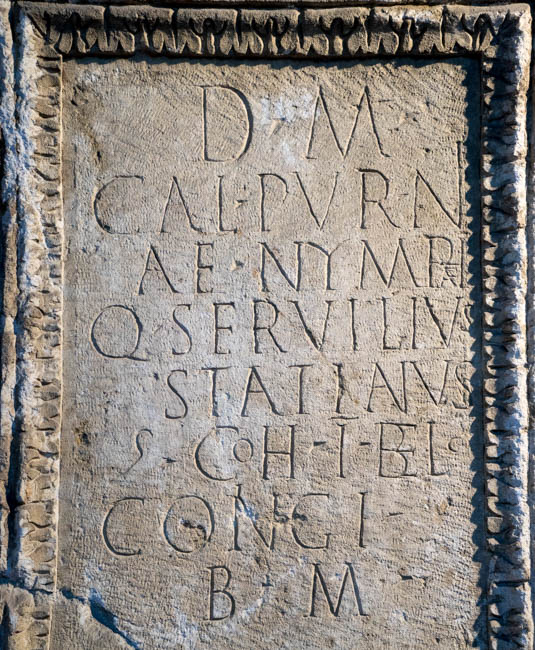 D·M
CAL·PVR·N
AE·
Q SERVILIV
STATIANVS
COH·I·BEL
CONGI·
B·M